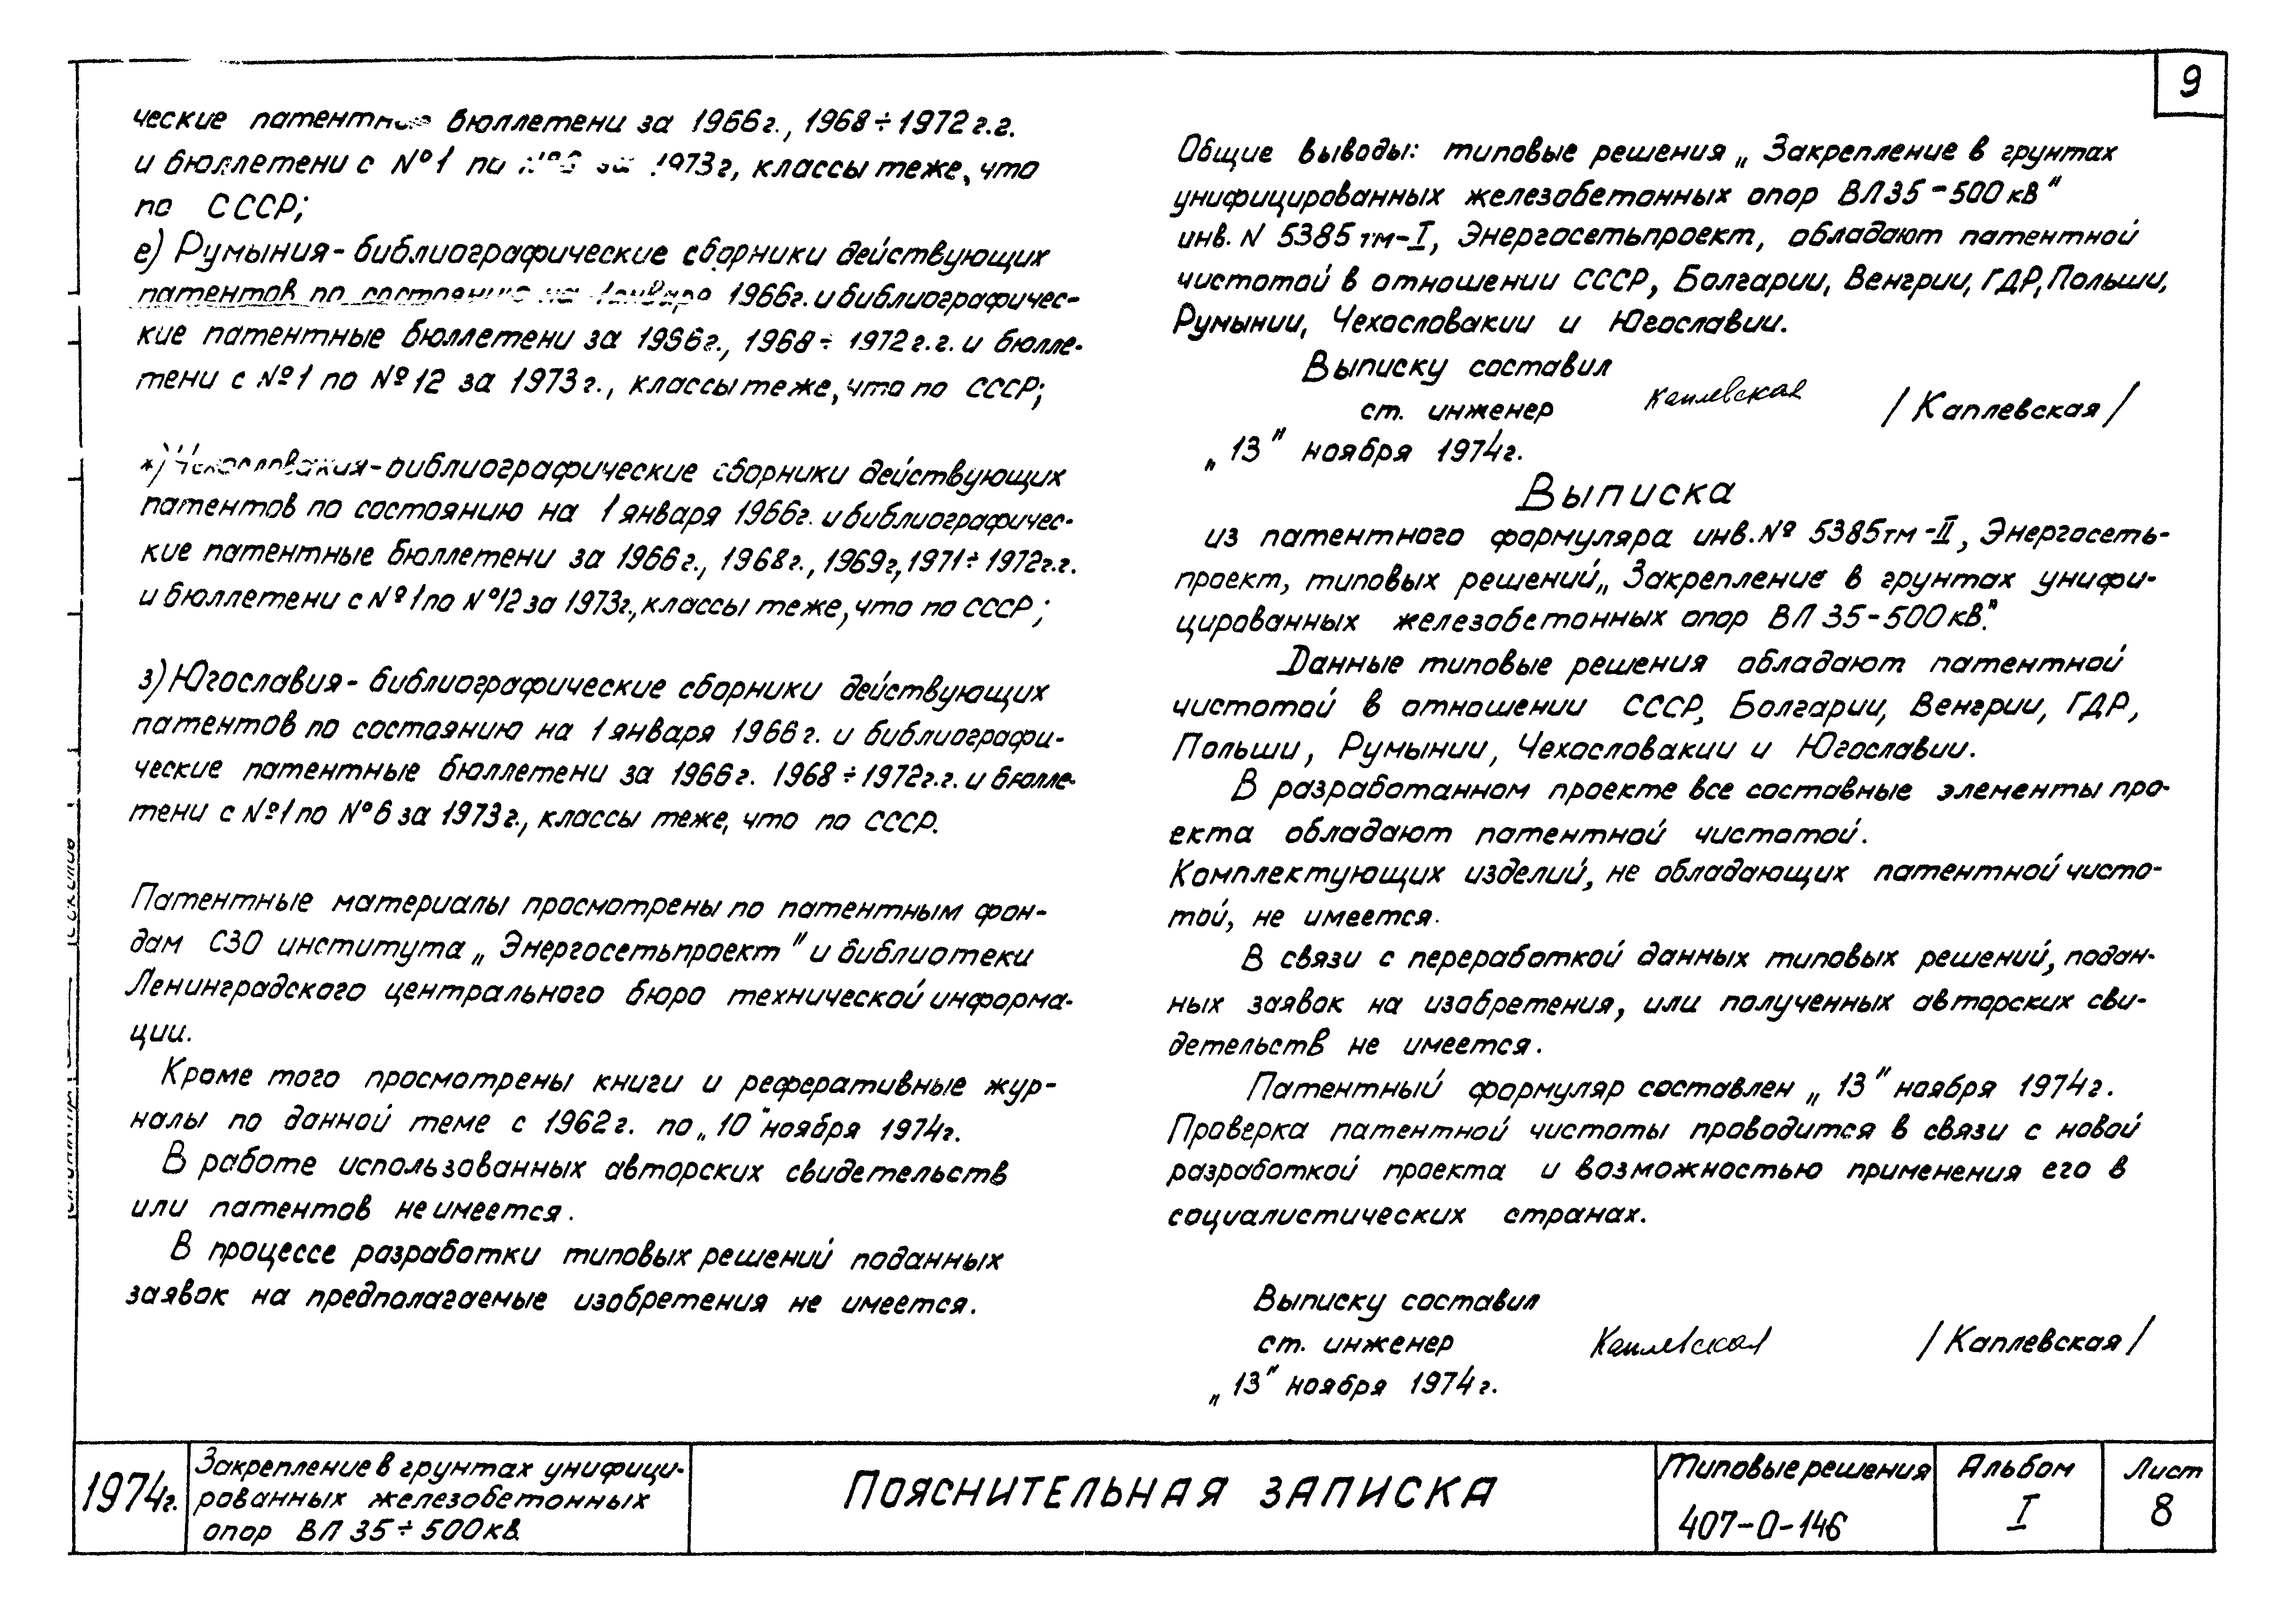 9
ческие патентные бюллетени за 1966г., 1968÷1972г.г.
и бюллетени с №1 по №6 за 1973г, классы теже, что
по СССР;
е) Румыния-библиографические сборники действующих
патентов по состоянию на 1 января 1966г. и библиографичес-
кие патентные бюллетени за 1966г., 1968÷1972г.г. и бюлле-
тени с №1 по №12 за 1973г., классы теже, что по СССР;
ж) Чехословакия-библиографические сборники действующих
патентов по состоянию на 1 января 1966г. и библиографичес-
кие патентные бюллетени за 1966г., 1968г., 1969г, 1971÷1972г.г.
и бюллетени с №1 по №12 за 1973г., классы теже, что по СССР;
з) Югославия-библиографические сборники действующих
патентов по состоянию на 1 января 1966г. и библиографи-
ческие патентные бюллетени за 1966г. 1968÷1972г.г. и бюлле-
тени с №1 по №6 за 1973г., классы теже, что по СССР.
Патентные материалы просмотрены по патентным фон-
дам СЗО института „Энергосетьпроект" и библиотеки
Ленинградского центрального бюро технической информа-
ции.
Кроме того просмотрены книги и реферативные жур-
налы по данной теме с 1962г. по „10" ноября 1974г.
В работе использованных авторских свидетельств
или патентов не имеется.
В процессе разработки типовых решений поданных
заявок на предполагаемые изобретения не имеется.
Общие выводы: типовые решения „Закрепление в грунтах
унифицированных железобетонных опор ВЛ35-500кВ"
инв. N 5385тм-I, Энергосетьпроект, обладают патентной
чистотой в отношении СССР, Болгарии, Венгрии, ГДР, Польши,
Румынии, Чехословакии и Югославии.
Выписку составил
ст. инженер Каплевская /Каплевская/
„13" ноября 1974г.
Выписка
из патентного формуляра инв.№ 5385тм-II, Энергосеть-
проект, типовых решений „Закрепление в грунтах унифи-
цированных железобетонных опор ВЛ 35-500кВ."
Данные типовые решения обладают патентной
чистотой в отношении СССР, Болгарии, Венгрии, ГДР,
Польши, Румынии, Чехословакии и Югославии.
В разработанном проекте все составные элементы про-
екта обладают патентной чистотой.
Комплектующих изделий, не обладающих патентной чисто-
той, не имеется.
В связи с переработкой данных типовых решений, подан-
ных заявок на изобретения, или полученных авторских сви-
детельств не имеется.
Патентный формуляр составлен „13" ноября 1974г.
Проверка патентной чистоты проводится в связи с новой
разработкой проекта и возможностью применения его в
социалистических странах.
Выписку составил
ст. инженер Каплевская /Каплевская/
„13" ноября 1974г.
1974г.
Закрепление в грунтах унифици-
рованных железобетонных
опор ВЛ 35÷500кВ
Пояснительная записка
Типовые решения
407-0-146
Альбом
I
Лист
8